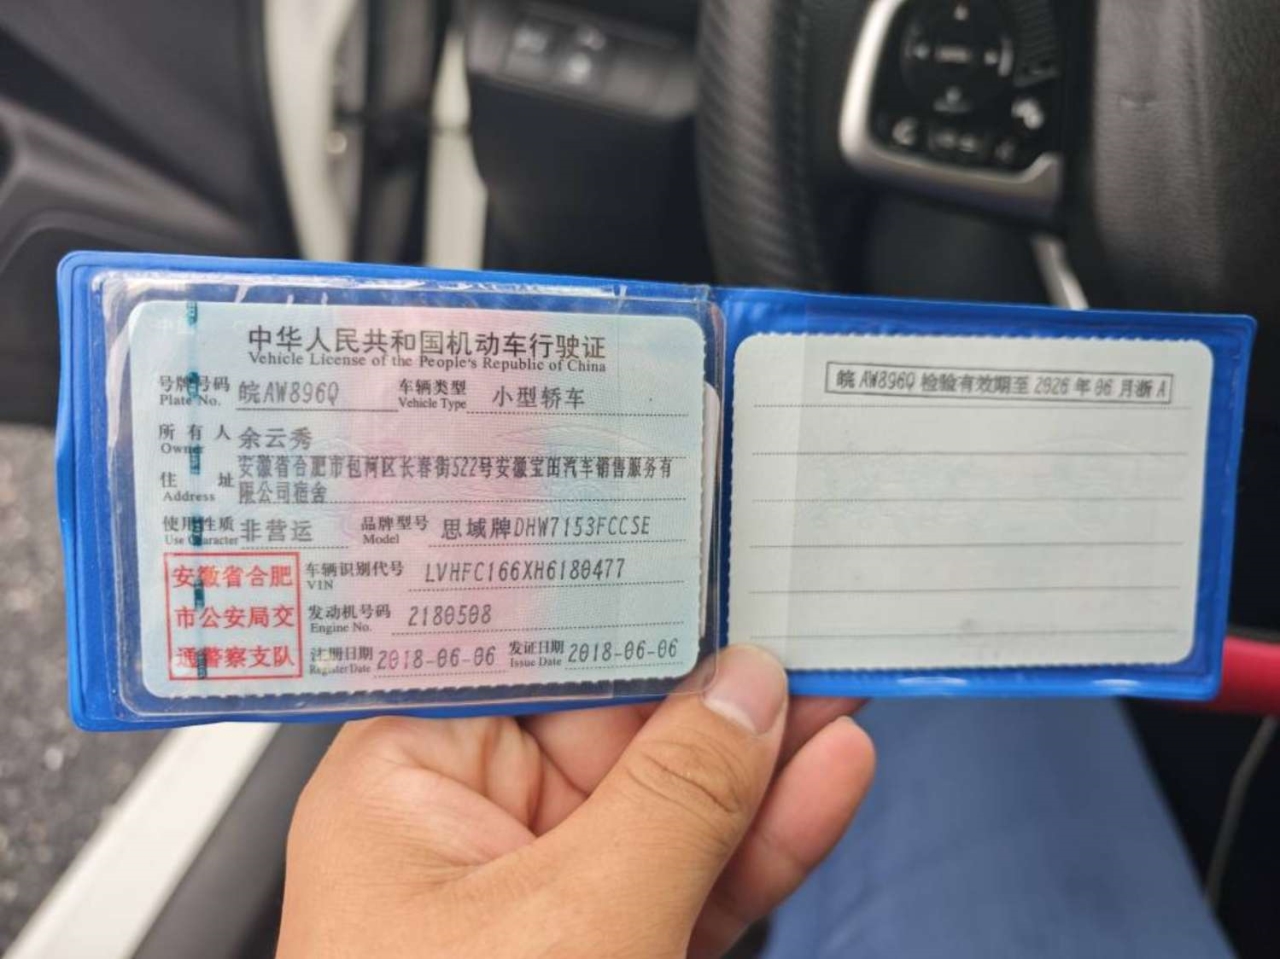 中华人民共和国机动车行驶证
Vehicle License of the People's Republic of China
号牌号码 皖AW896Q 车辆类型 小型轿车
Plate No. Vehicle Type
所有人 余云秀
Owner
住址 安徽省合肥市包河区长春街522号安徽宝田汽车销售服务有
Address 限公司宿舍
使用性质 非营运 品牌型号 思域牌DHW7153FCCSE
Use Character Model
安徽省合肥
市公安局交
通警察支队
车辆识别代号 LVHFC166XH6180477
VIN
发动机号码 2180508
Engine No.
注册日期 2018-06-06 发证日期 2018-06-06
Register Date Issue Date
皖AW896Q检验有效期至2026年06月浙A